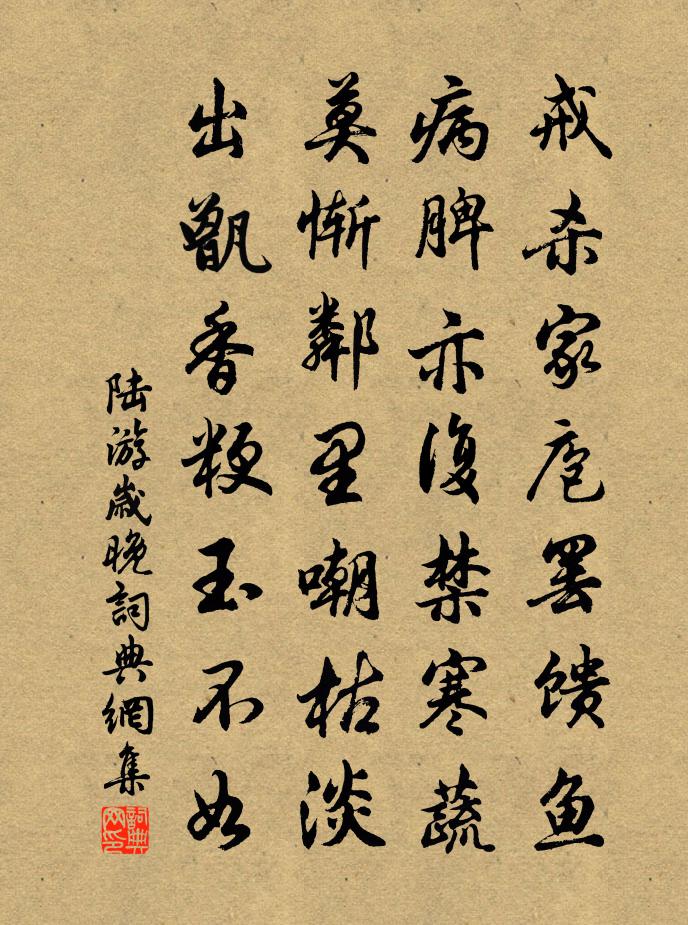 戒杀家庖罢馈鱼
病脾亦复禁寒蔬
莫惭鄰里嘲枯淡
出甑香粳玉不如
陆游歳晚詞典網集
詞典
网印